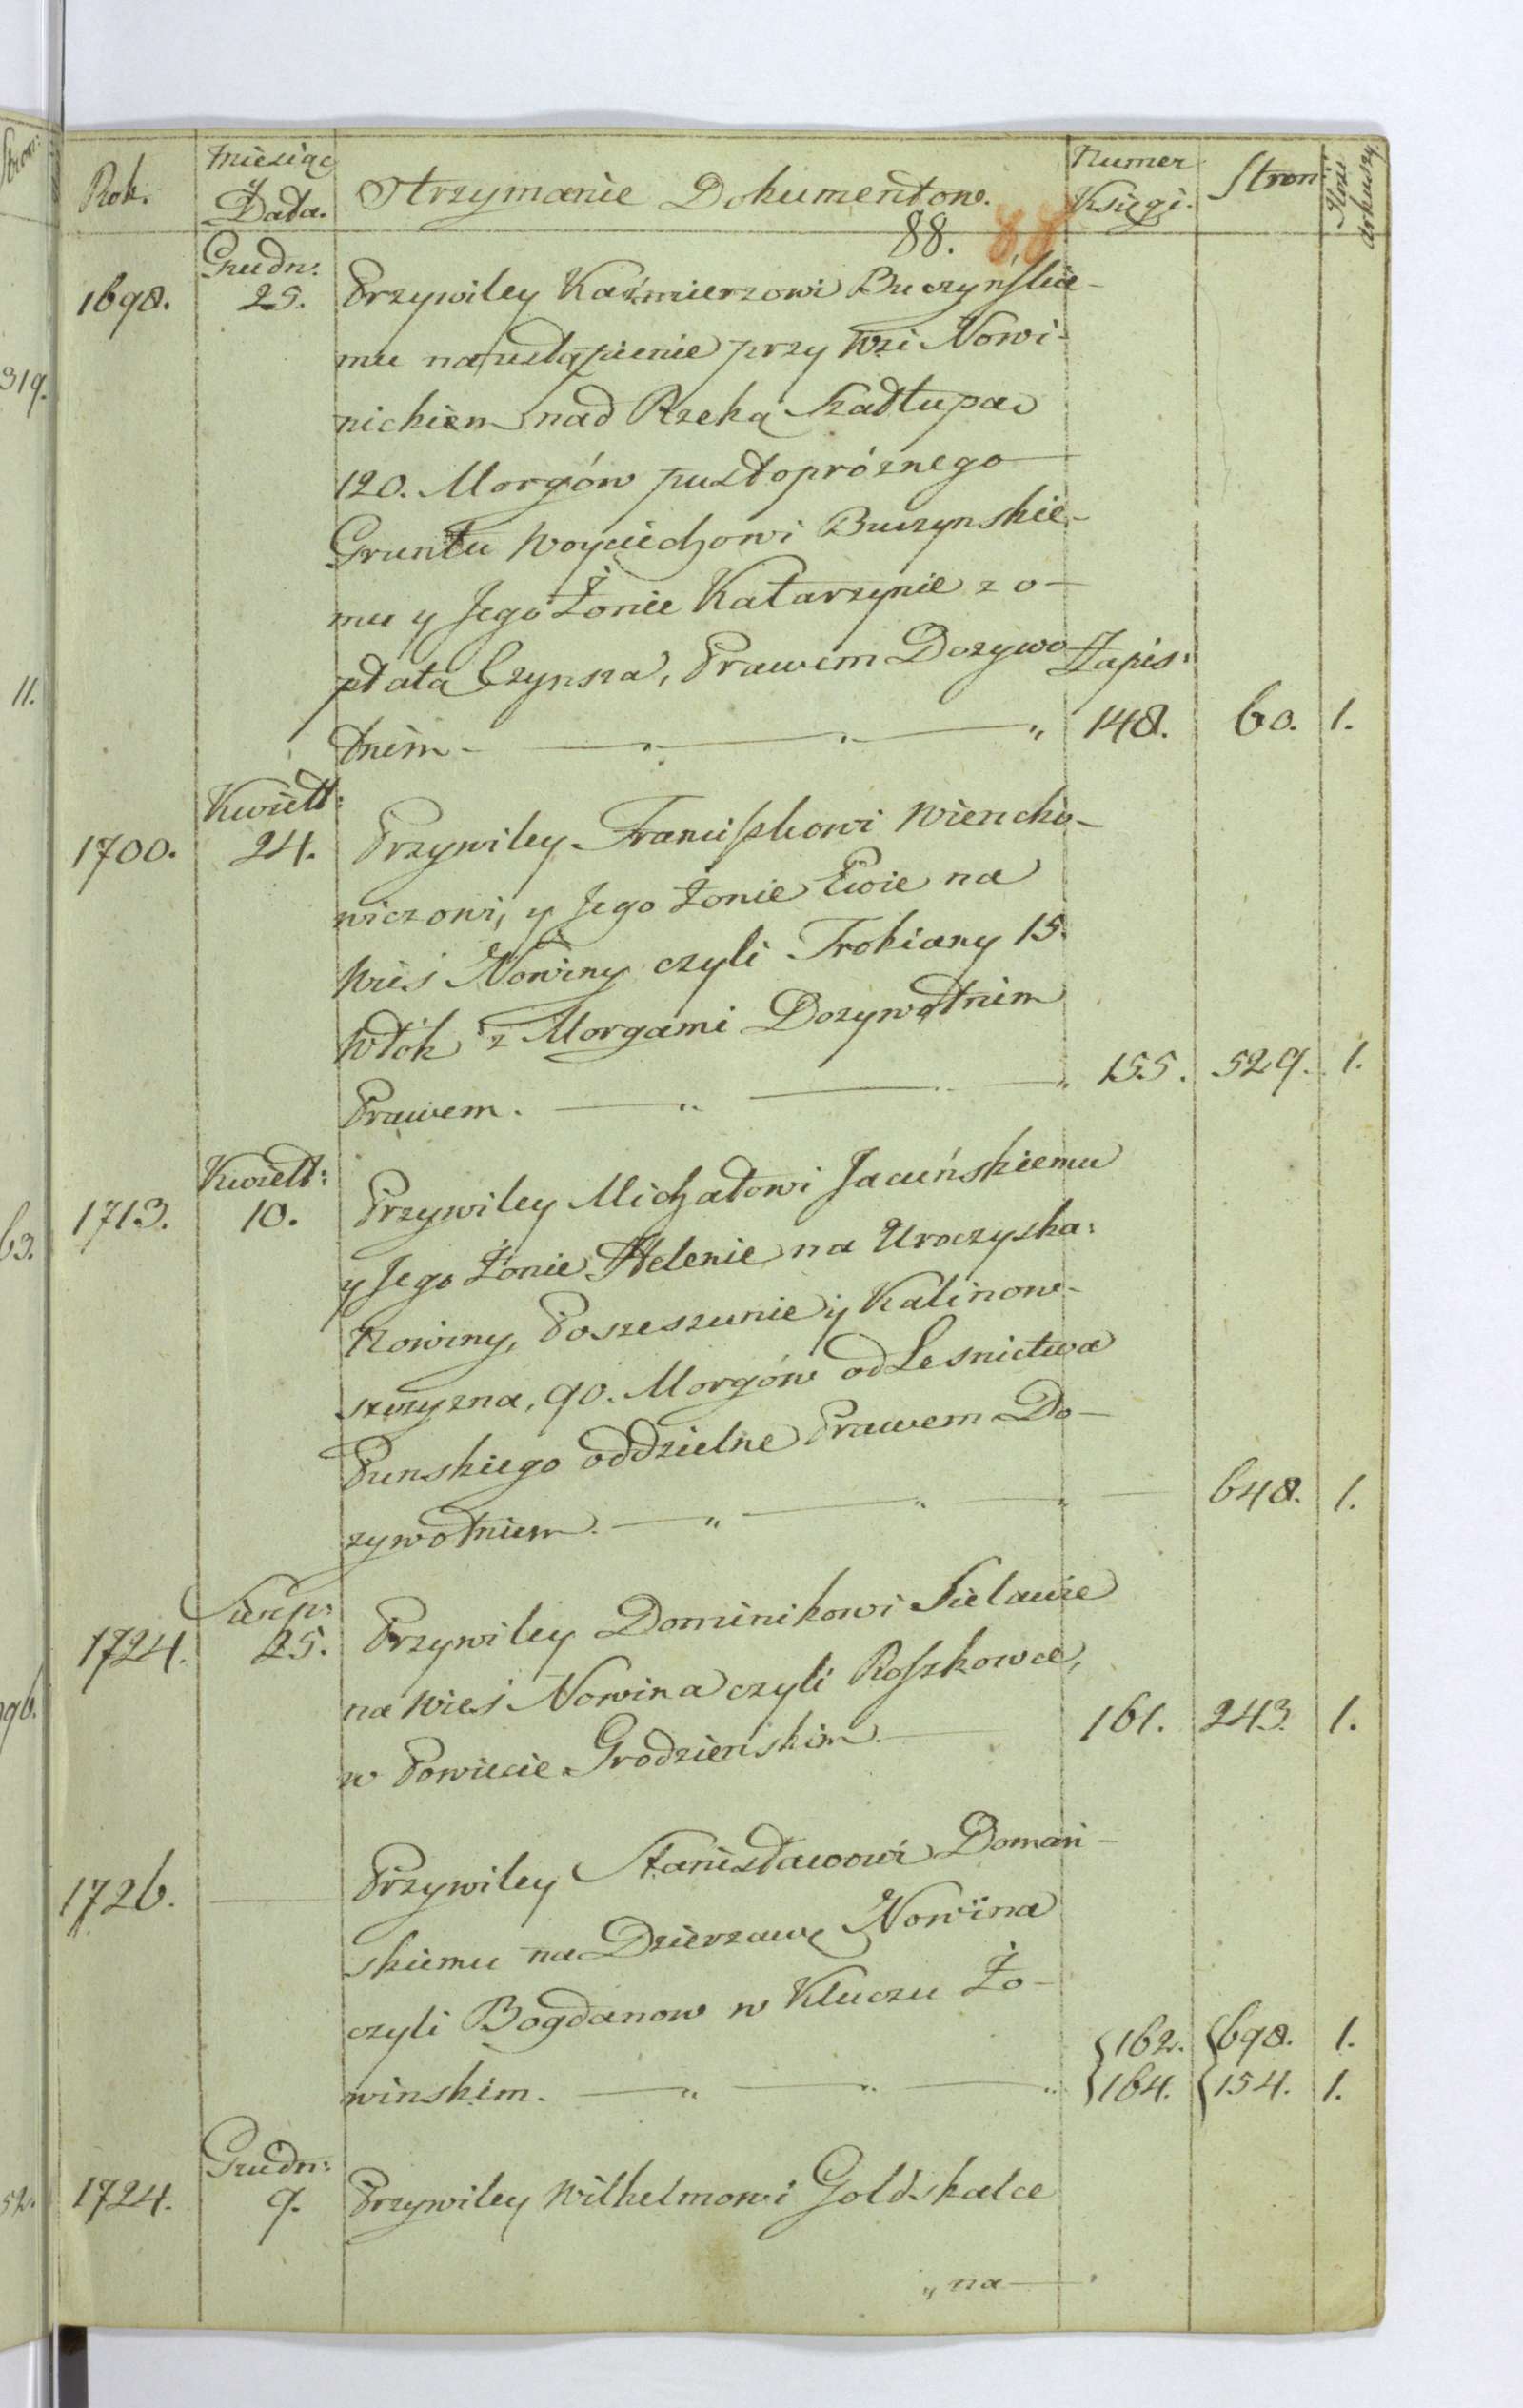 Rok. Miesiąc y Data. Otrzymanie Dokumentow. Numer Księgi. Stron: Ilosc arkuszy.
88. 88
Grudn:
1698. 25. Przywiley Kaźmierzowi Buczyńskie-
mu na ustąpienie przy Wsi Nowi-
nickiem nad Rzeką Kadłupa
120. Morgów pustopróznego
Gruntu Woyciechowi Buczynskie-
mu y Jego Żonie Katarzynie z o-
płata Czynsza, Prawem Dozywo Zapis:
tnim - " " " 148. 60. 1.
Kwiett:
1700. 24. Przywiley Franciszkowi Wiencko-
wiczowi, y Jego Żonie Ewie na
Wieś Nowiny czyli Trokiany 15.
Włók z Morgami Dozywotnim
Prawem. " " " 155. 529. 1.
Kwiett:
1713. 10. Przywiley Michałowi Jacuńskiemu
y Jego Żonie Helenie na Uroczyska:
Nowiny, Poszeszunie y Kalinow-
szczyzna, 90. Morgów od Lesnictwa
Punskiego oddzielne Prawem Do-
zywotniem. " " " 648. 1.
Sierp:
1724. 25. Przywiley Dominikowi Sielawie
na Wieś Nowina czyli Roszkowce,
w Powiecie Grodzieńskim. 161. 243. 1.
1726. Przywiley Stanisławowi Domań-
skiemu na Dzierzawę Nowina
czyli Bogdanow w Kluczu Ło-
{162. {698. 1.
winskim. " " " {164. {154. 1.
Grudn:
1724. 9. Przywiley Wilhelmowi Goldskalce
" na
319.
11.
63.